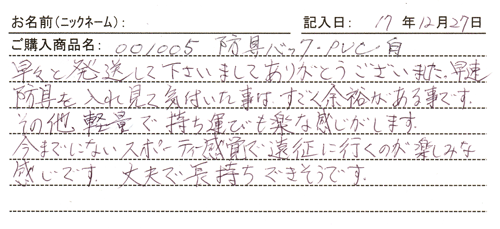 お名前(ニックネーム): 記入日: 17年12月27日
ご購入商品名: 001005 防具バック・PVC・白
早々と発送して下さいましてありがとうございました。早速
防具を入れ見て気付いた事は、すごく余裕がある事です。
その他、軽量で持ち運びも楽な感じがします。
今までにないスポーティ感覚で遠征に行くのが楽しみな
感じです。 大夫で長持ちできそうです。